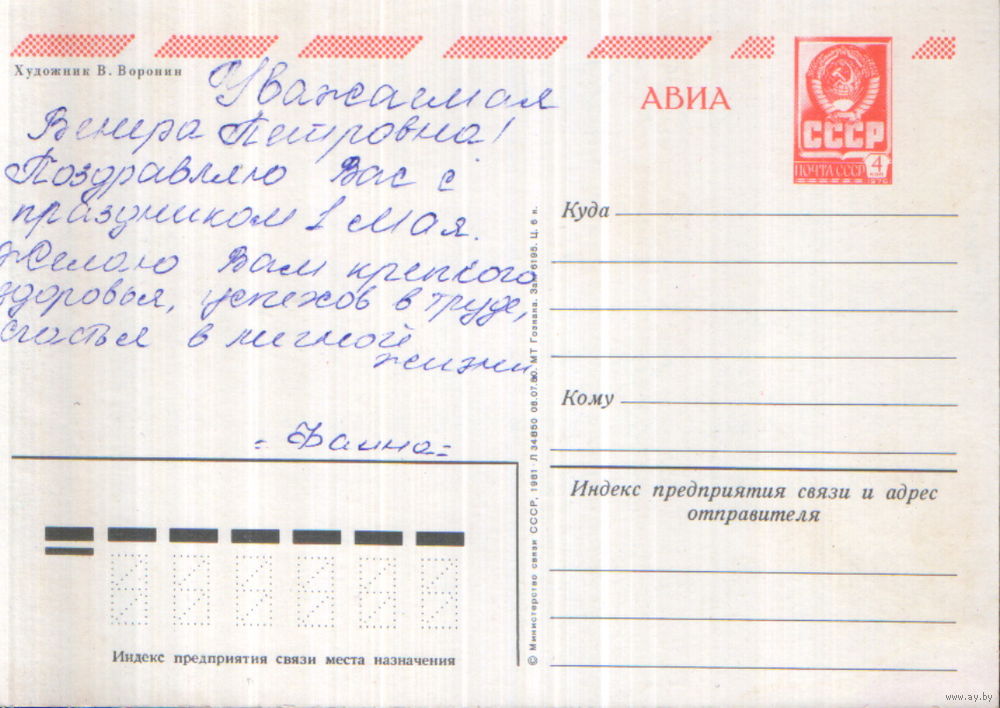 Художник В. Воронин
Уважаемая
Венера Петровна!
Поздравляю Вас с
праздником 1 Мая.
Желаю Вам крепкого
здоровья, успехов в труде,
счастья в личной
жизни
= Фаина =
Индекс предприятия связи места назначения
© Министерство связи СССР, 1981 Л 34850 08.07.80. МТ Гознака. Зак 6195. Ц. 6 к.
АВИА
СССР
ПОЧТА СССР
4
КОП
Куда
Кому
Индекс предприятия связи и адрес
отправителя
www.ay.by